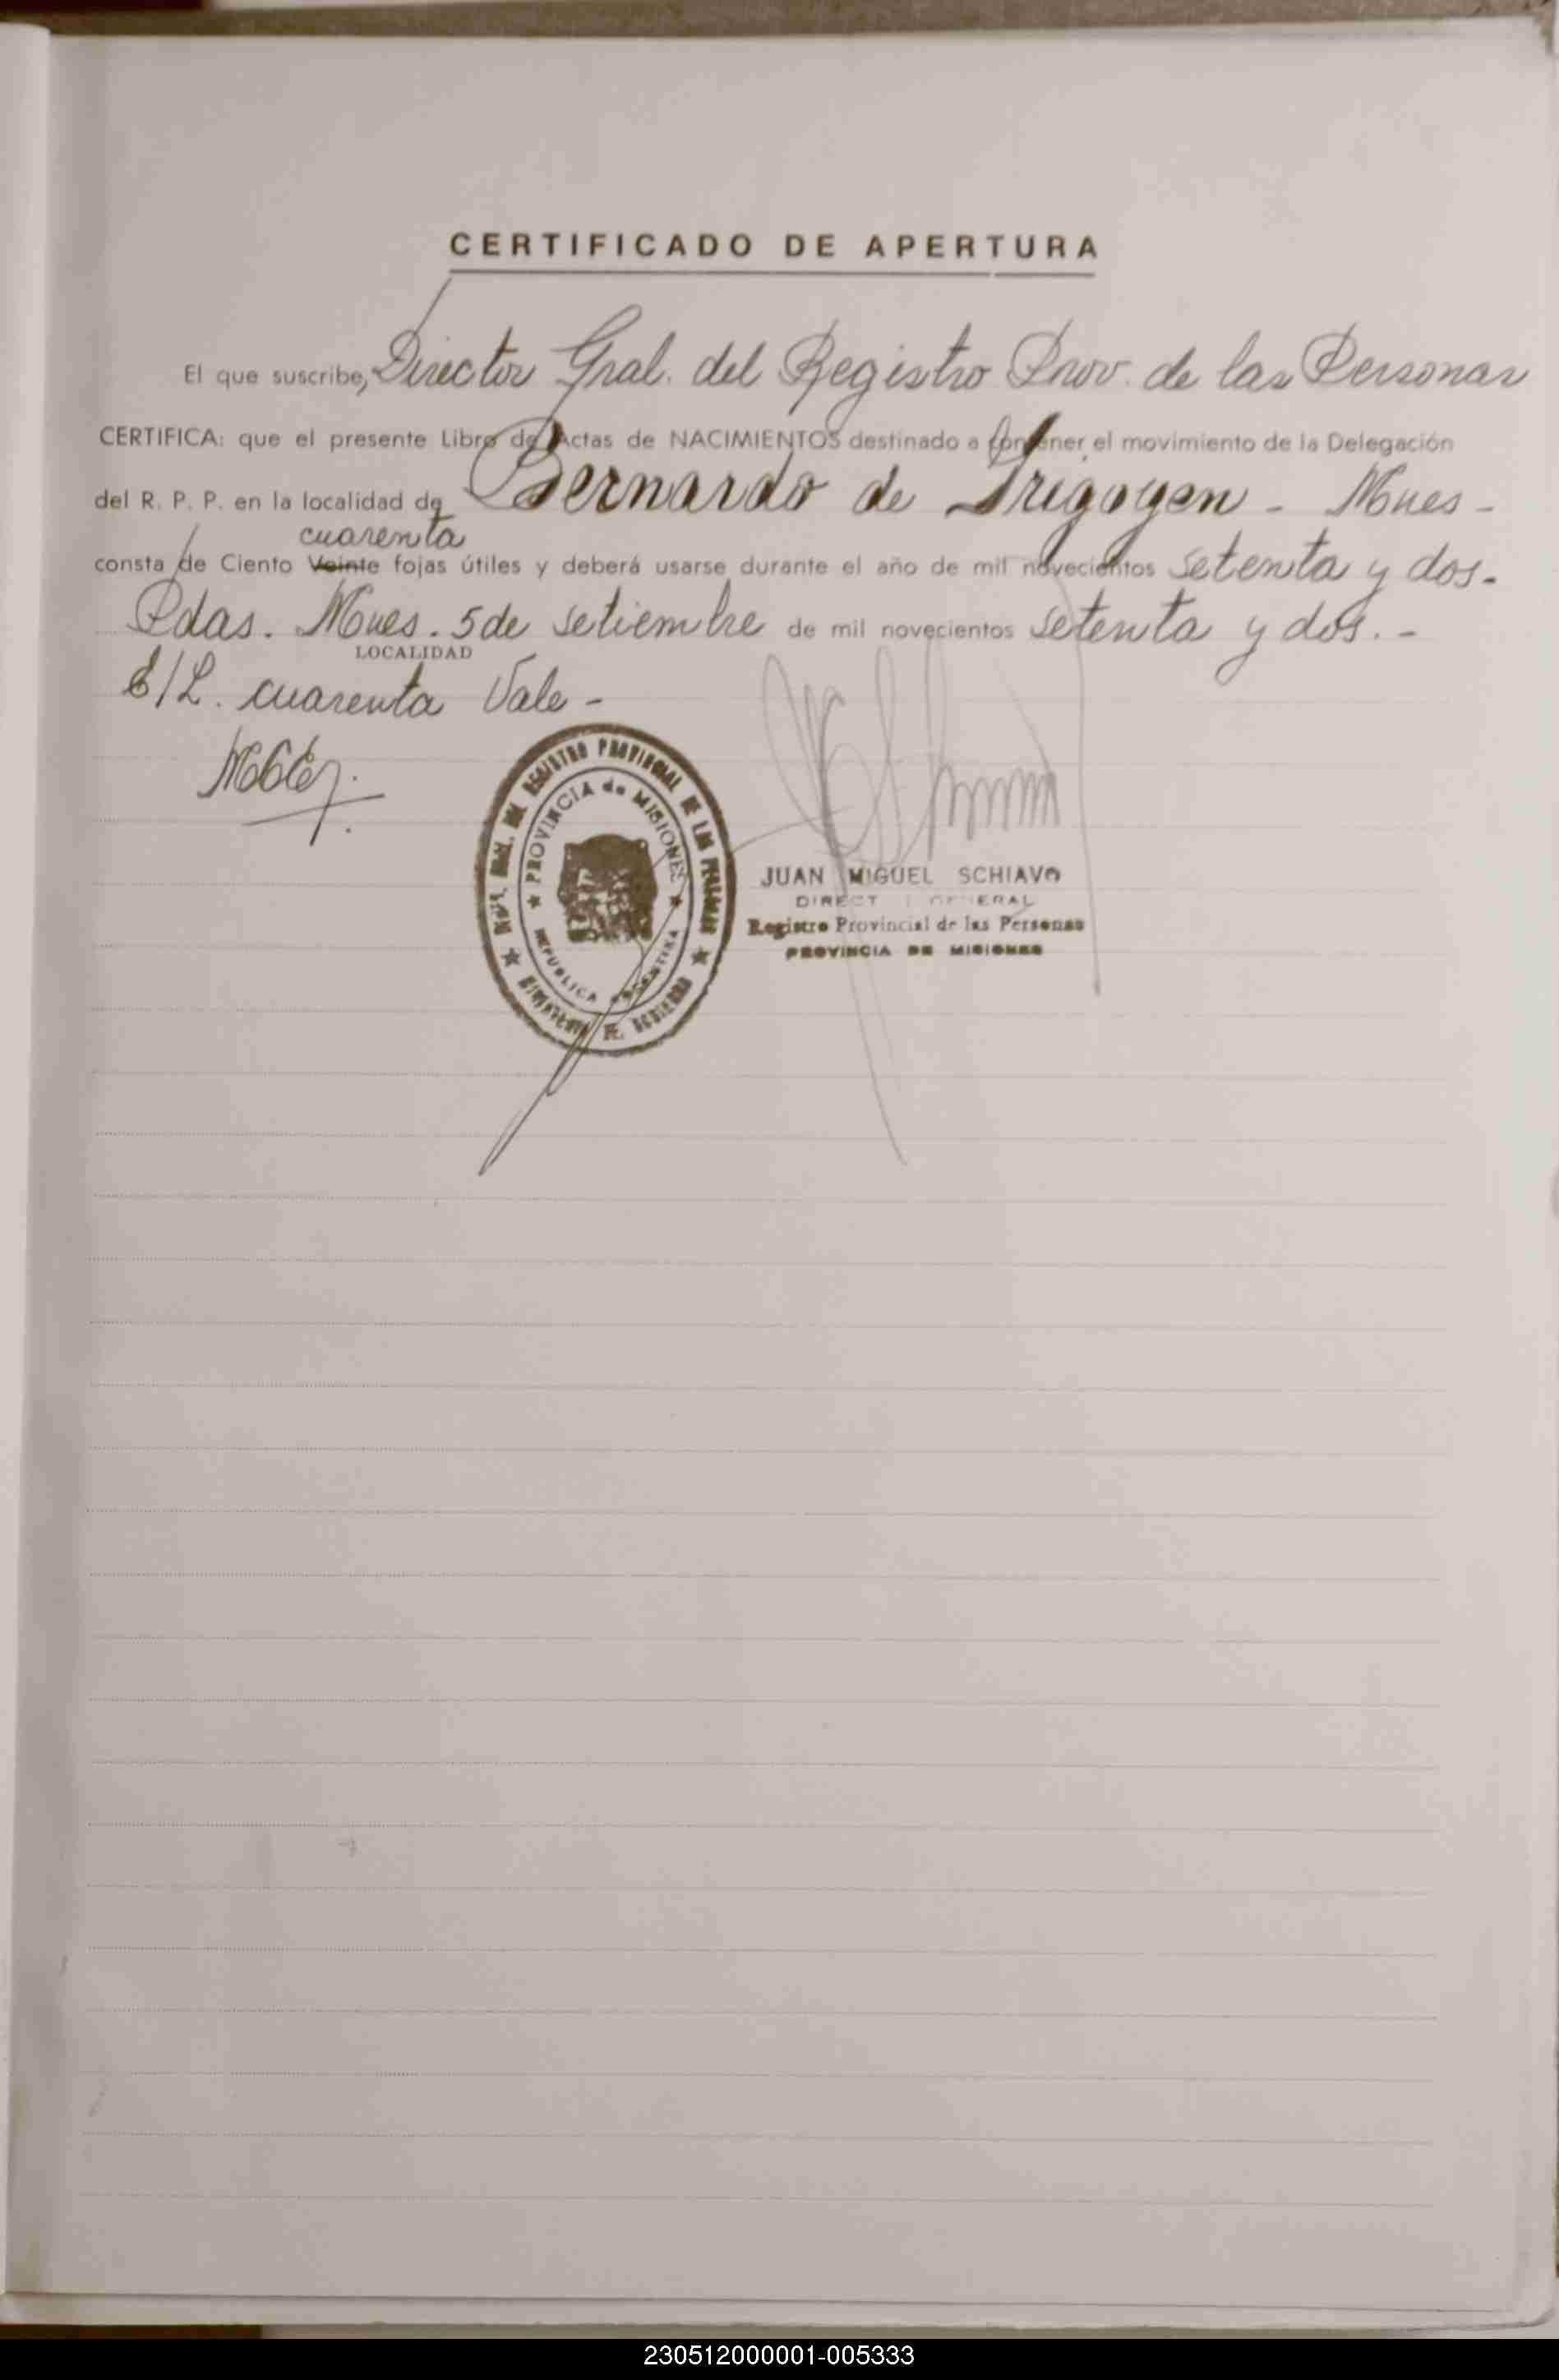 CERTIFICADO DE APERTURA
El que suscribe, Director Gral. del Registro Prov. de las Personas
CERTIFICA: que el presente Libro de Actas de NACIMIENTOS destinado a contener el movimiento de la Delegación
del R. P. P. en la localidad de Bernardo de Irigoyen - Mnes -
cuarenta
consta de Ciento Veinte fojas útiles y deberá usarse durante el año de mil novecientos setenta y dos.
Pdas. Mnes. 5 de setiembre de mil novecientos setenta y dos. -
LOCALIDAD
E/L. cuarenta Vale -
REGISTRO PROVINCIAL DE LAS PERSONAS
PROVINCIA de MISIONES
REPUBLICA ARGENTINA
JUAN MIGUEL SCHIAVO
DIRECTOR GENERAL
Registro Provincial de las Personas
PROVINCIA DE MISIONES
230512000001-005333